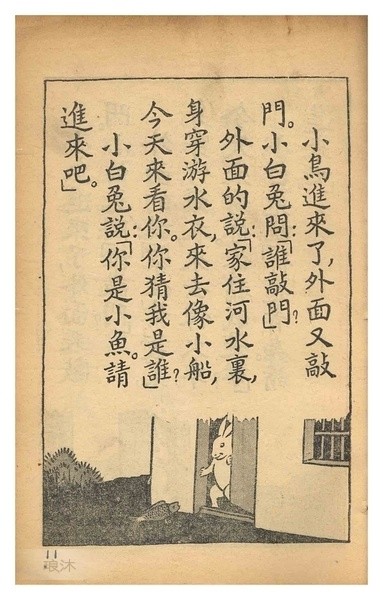 小鳥進來了,外面又敲
門。小白兔問:「誰敲門?」
外面的說:「家住河水裏,
身穿游水衣,來去像小船,
今天來看你。你猜我是誰?」
小白兔說:「你是小魚。請
進來吧。」
11